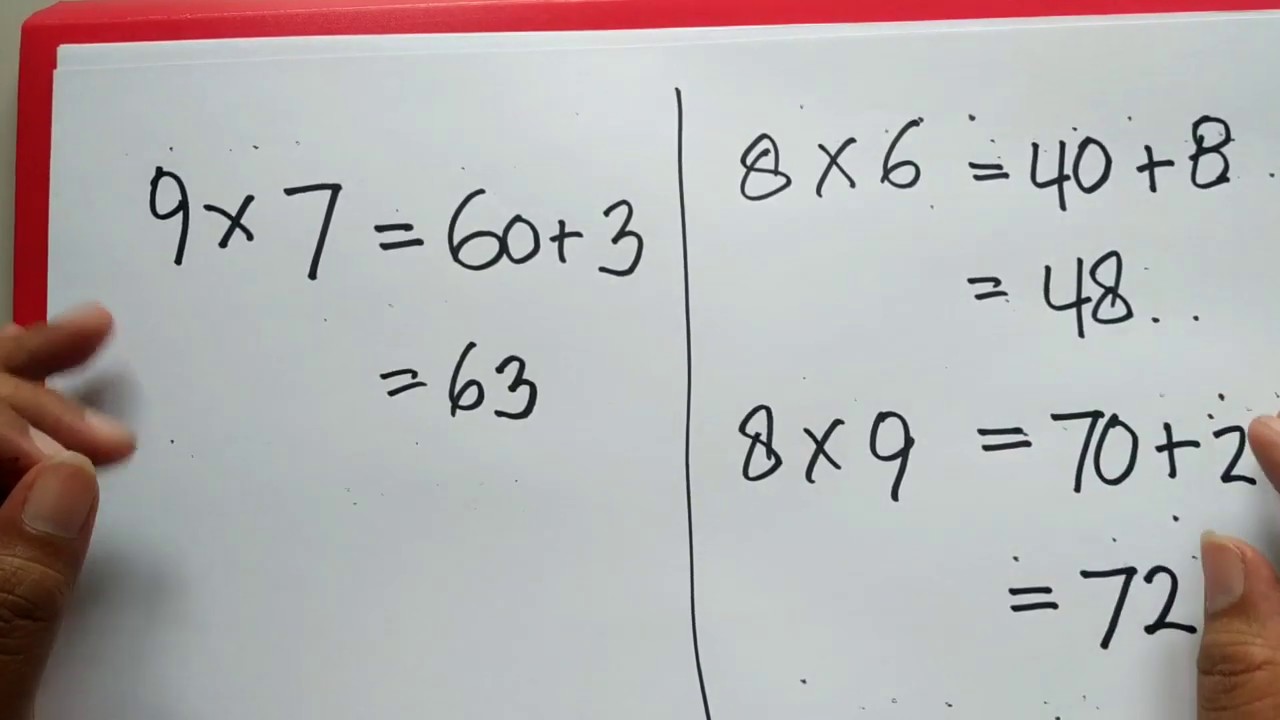 9 × 7 = 60 + 3
= 63
8 × 6 = 40 + 8
= 48
8 × 9 = 70 + 2
= 72